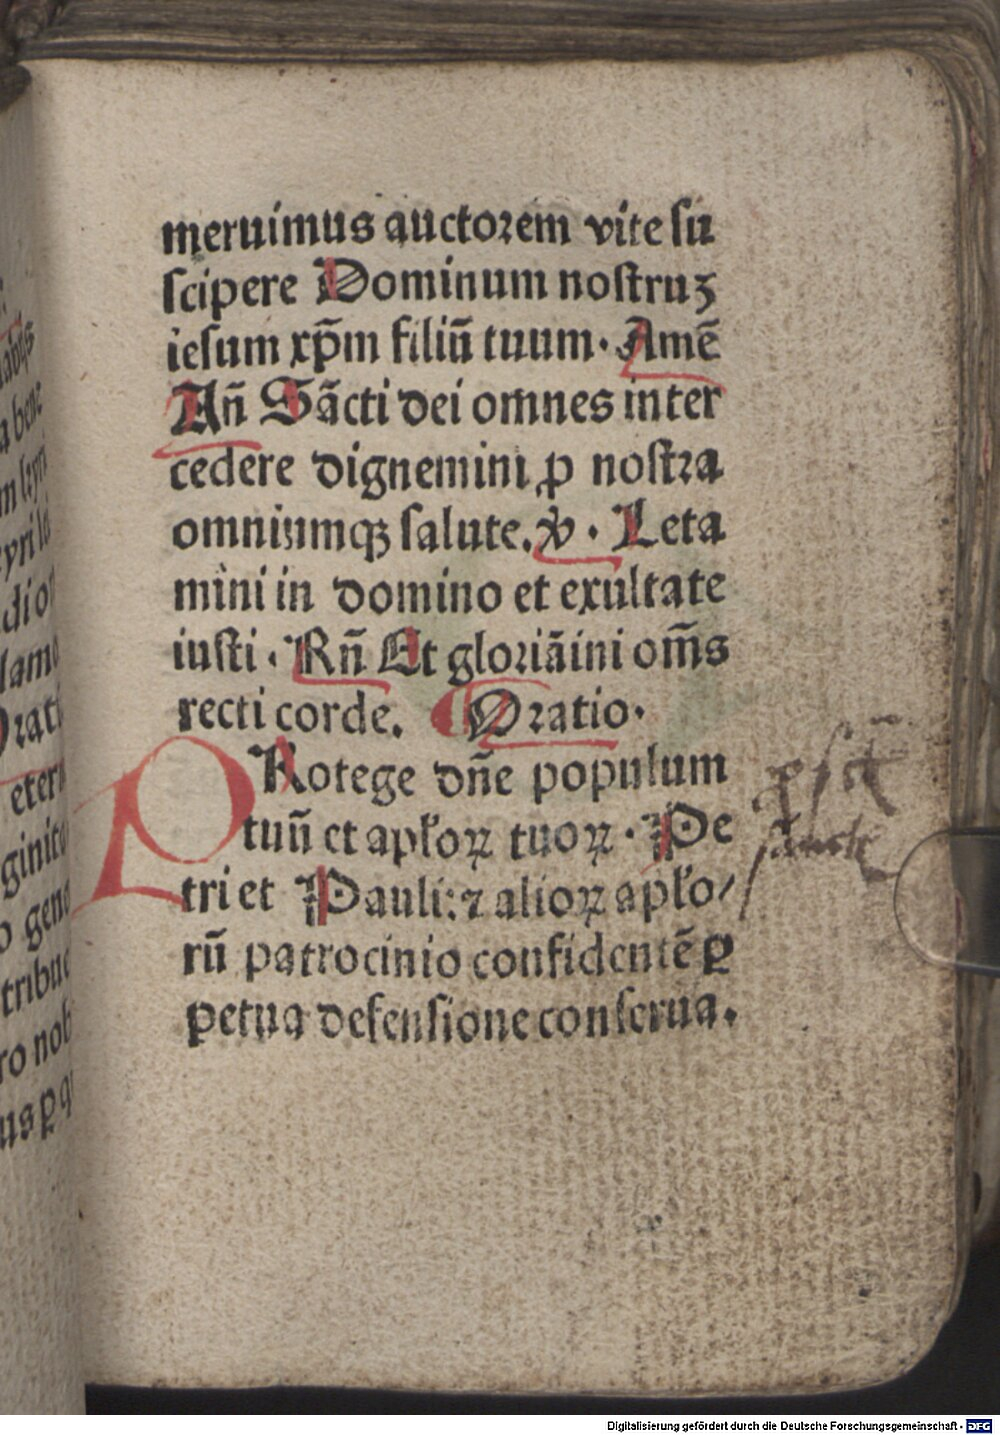 meruimus auctorem vite su
scipere Dominum nostruʒ
iesum xp̄m filiū tuum. Amē
Añ Sācti dei omnes inter
cedere dignemini ꝓ nostra
omniumqꝫ salute. ꝟ. Leta
mini in domino et exultate
iusti. Rñ Et gloriāini om̄s
recti corde. Oratio.
PRotege dn̄e populum
tuū et apl'oꝝ tuoꝝ. Pe
tri et Pauli: ⁊ alioꝝ apl'o/
rū patrocinio confidentē ꝑ
petua defensione conserua.
Digitalisierung gefördert durch die Deutsche Forschungsgemeinschaft - DFG